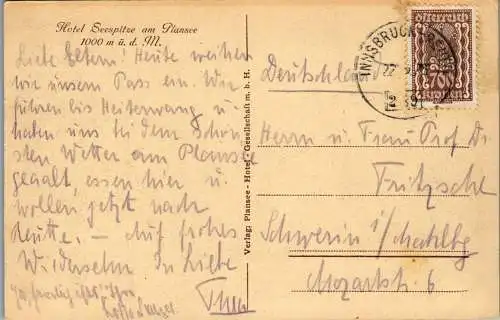 Hotel Seespitze am Plansee
1000 m ü. d. M.
Liebe Eltern! Heute weihen
wir unsern Pass ein. Wir
fuhren bis Heiterwang u.
haben uns bei dem schön-
sten Wetter am Plansee
geaalt, essen hier u.
wollen jetzt nach
Reutte. – Auf frohes
Wiedersehn In Liebe
Verlag: Plansee-Hotel-Gesellschaft m. b. H.
österreich
700
Kronen
INNSBRUCK
Deutschland
Herrn u. Frau Prof Dr.
Fritzsche
Schwerin i/Mecklbg
Mozartstr. 6